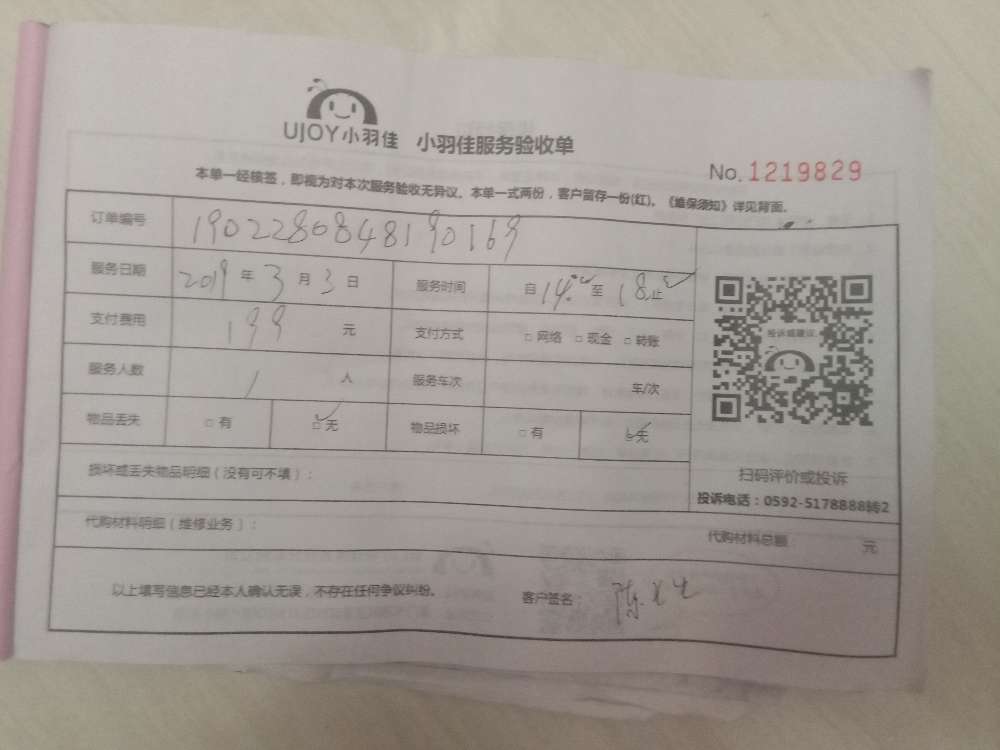 UJOY小羽佳 小羽佳服务验收单
No. 1219829
本单一经核签，即视为对本次服务验收无异议。本单一式两份，客户留存一份(红)。《维保须知》详见背面。
订单编号 1902280848190169
服务日期 2019 年 3 月 3 日 服务时间 自 14:00 至 18 止
支付费用 199 元 支付方式 □ 网络 □ 现金 □ 转账
投诉或建议
服务人数 1 人 服务车次 车/次
物品丢失 □ 有 ☑ 无 物品损坏 □ 有 ☑ 无
损坏或丢失物品明细（没有可不填）：
扫码评价或投诉
投诉电话：0592-5178888转2
代购材料明细（维修业务）： 代购材料总额 元
以上填写信息已经本人确认无误，不存在任何争议纠纷。 客户签名： 陈